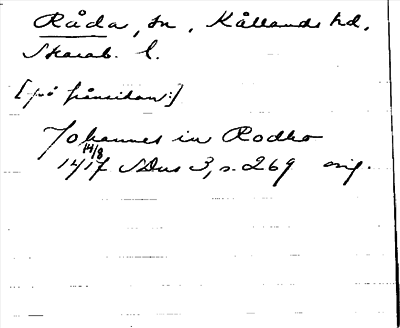 Råda, sn, Kållands hd,
Skarab. l.
[på frånsidan:]
Johannes in Rodho
14/8
1417 SDns 3, s. 269 orig.